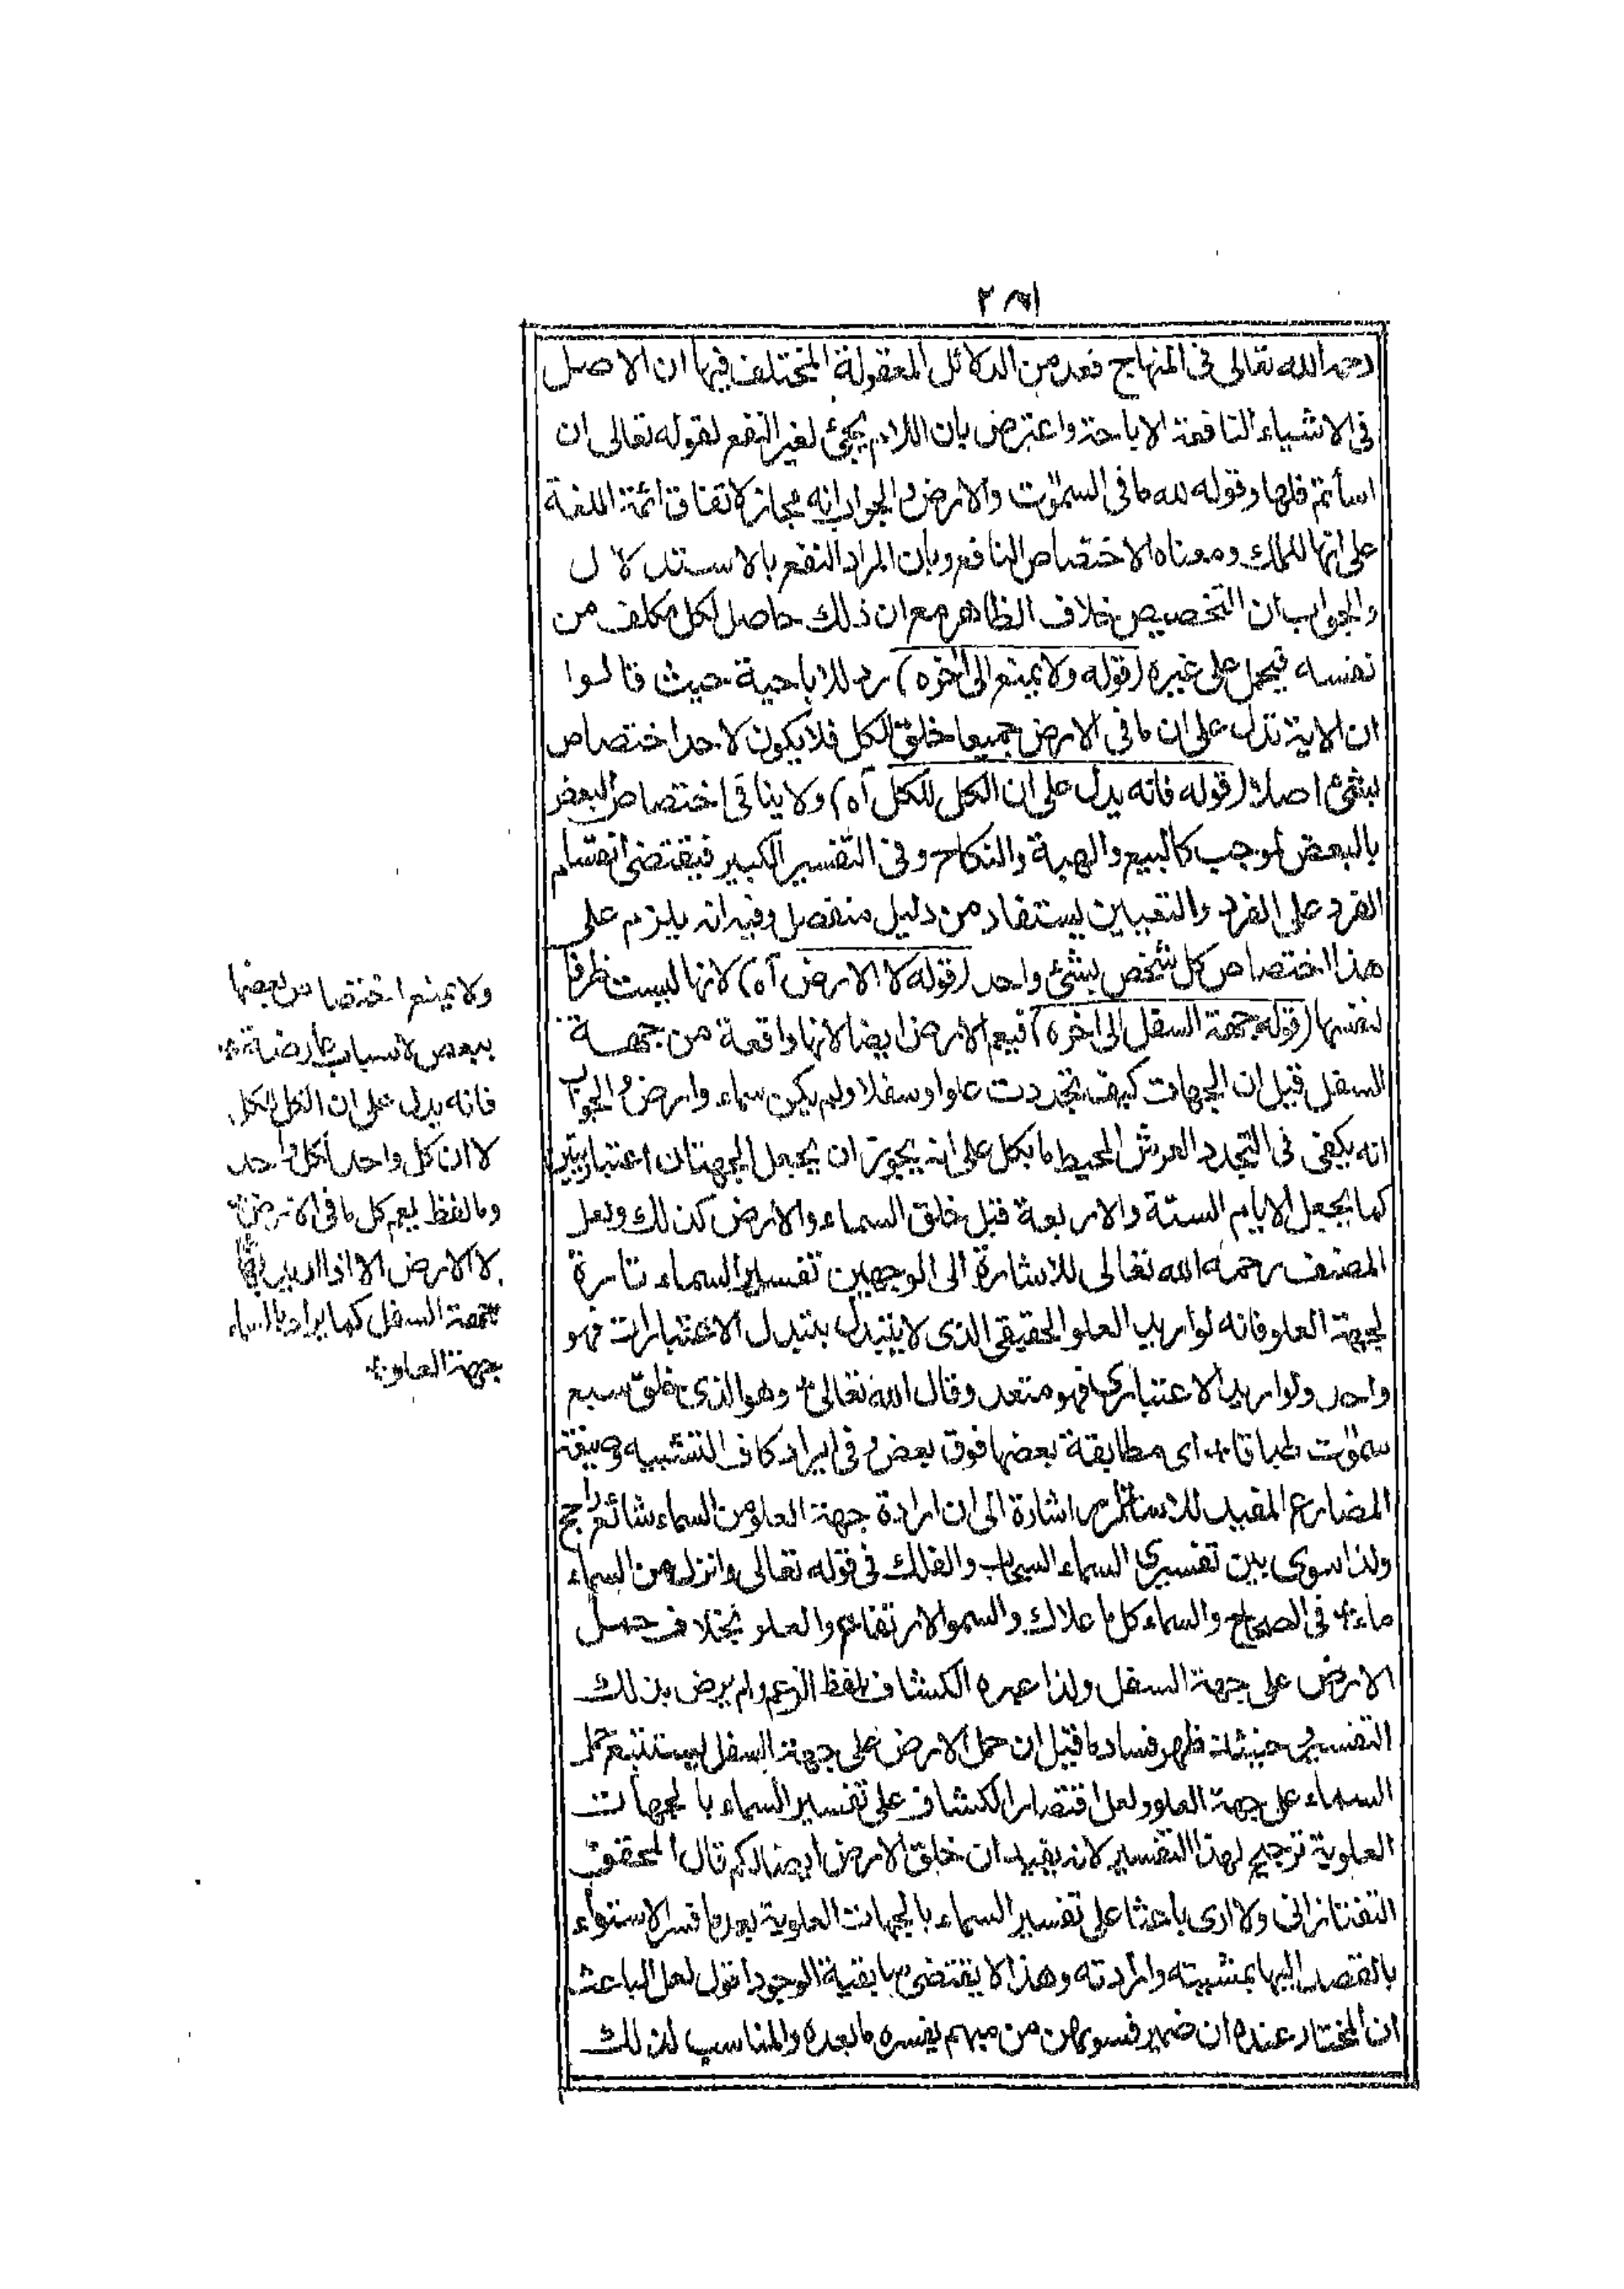 رحمه الله تعالى فى المنهاج فعد من الدلائل المعقولة المختلف فيها ان الاصل
فى الاشياء النافعة الاباحة واعترض بان اللام يجئ لغير النفع لقوله تعالى ان
اسأتم فلها وقوله لله ما فى السموٰت والارض والجواب انه مجاز لاتفاق ائمة اللغة
على انها للملك ومعناه الاختصاص النافع وبان المراد النفع بالاستدلال
والجواب ان التخصيص خلاف الظاهر مع ان ذلك حاصل لكل مكلف من
نفسه فيحمل على غيره (قوله ولا يمنع الى اخره) رد للاباحية حيث قالوا
ان الاية تدل على ان ما فى الارض جميعا خلق للكل فلا يكون لاحد اختصاص
بشئ اصلا (قوله فانه يدل على ان الكل للكل آه) ولا ينافى اختصاص البعض
بالبعض لموجب كالبيع والهبة والنكاح وفى التفسير الكبير فيقتضى انقسام
الفرد على الفرد والتعيين يستفاد من دليل منفصل وفيه انه يلزم على
هذا اختصاص كل شخص بشئ واحد (قوله لا الارض آه) لانها ليست ظرفا
لنفسها (قوله جهة السفل الى اخره) فيعم الارض ايضا لانها واقعة من جهة
السفل قيل ان الجهات كيف تحددت علوا وسفلا ولم يكن سماء وارض والجواب
انه يكفى فى التحدد العرش المحيط بالكل على انه يجوز ان يجعل الجهتان اعتباريتين
كما يجعل الايام الستة والاربعة قبل خلق السماء والارض كذلك ولعل
المصنف رحمه الله تعالى للاشارة الى الوجهين تفسير السماء تارة
لجهة العلو فانه لو اريد العلو الحقيقى الذى لا يتبدل بتبدل الاعتبارات فهو
واحد ولو اريد الاعتبارى فهو متعدد وقال الله تعالى وهو الذى خلق سبع
سموٰت طباقا اى مطابقة بعضها فوق بعض وفى ايراد كاف التشبيه وصيغة
المضارع المفيد للاستمرار اشارة الى ان ارادة جهة العلو من السماء شائع راجح
ولذا سوى بين تفسيرى السماء السحاب والفلك فى قوله تعالى وانزل من السماء
ماء فى الصحاح والسماء كل ما علاك والسمو الارتفاع والعلو بخلاف حمل
الارض على جهة السفل ولذا عبره الكشاف بلفظ الزعم ولم يرض بذلك
التفسير حينئذ ظهر فساد ما قيل ان حمل الارض على جهة السفل يستتبع حمل
السماء على جهة العلو ولعل اقتصار الكشاف على تفسير السماء بالجهات
العلوية ترجيح لهذا التفسير لانه يفيد ان خلق الارض ايضا لكم قال المحقق
التفتازانى ولا ارى باعثا على تفسير السماء بالجهات العلوية بعد ما فسر الاستواء
بالقصد اليها بمشيته وارادته وهذا لا يقتضى سابقية الوجود اقول لعل الباعث
ان المختار عنده ان ضمير فسوٰهن من مبهم يفسره ما بعده والمناسب لذلك
ولا يمنع اختصاص بعضها
ببعض لاسباب عارضة
فانه يدل على ان الكل للكل
لا ان كل واحد لكل واحد
وما لفظ يعم كل ما فى الارض
لا الارض الا اذا اريد بها
جهة السفل كما يراد بالسماء
جهة العلو